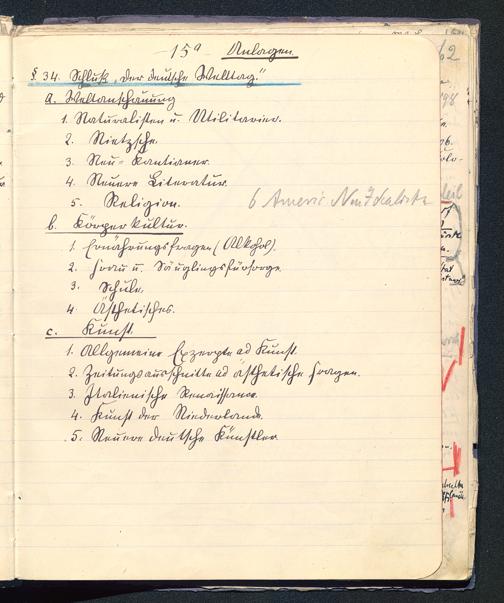 15a Anlagen.
§ 34. Schluß „der deutsche Welttag"
a. Weltanschauung
1. Naturalisten u. Utilitarier.
2. Nietzsche.
3. Neu-Kantianer.
4. Neuere Literatur.
5. Religion.
6 Americ Neu Idealisten
b. Körperkultur.
1. Ernährungsfragen (Alkohol).
2. Frau u. Säuglingsfürsorge
3. Schule.
4. Ästhetisches.
c. Kunst.
1. Allgemeine Exzerpte ad Kunst.
2. Zeitungsausschnitte ad ästhetische Fragen.
3. Italienische Renaissance.
4. Kunst der Niederlande.
5. Neuere deutsche Künstler